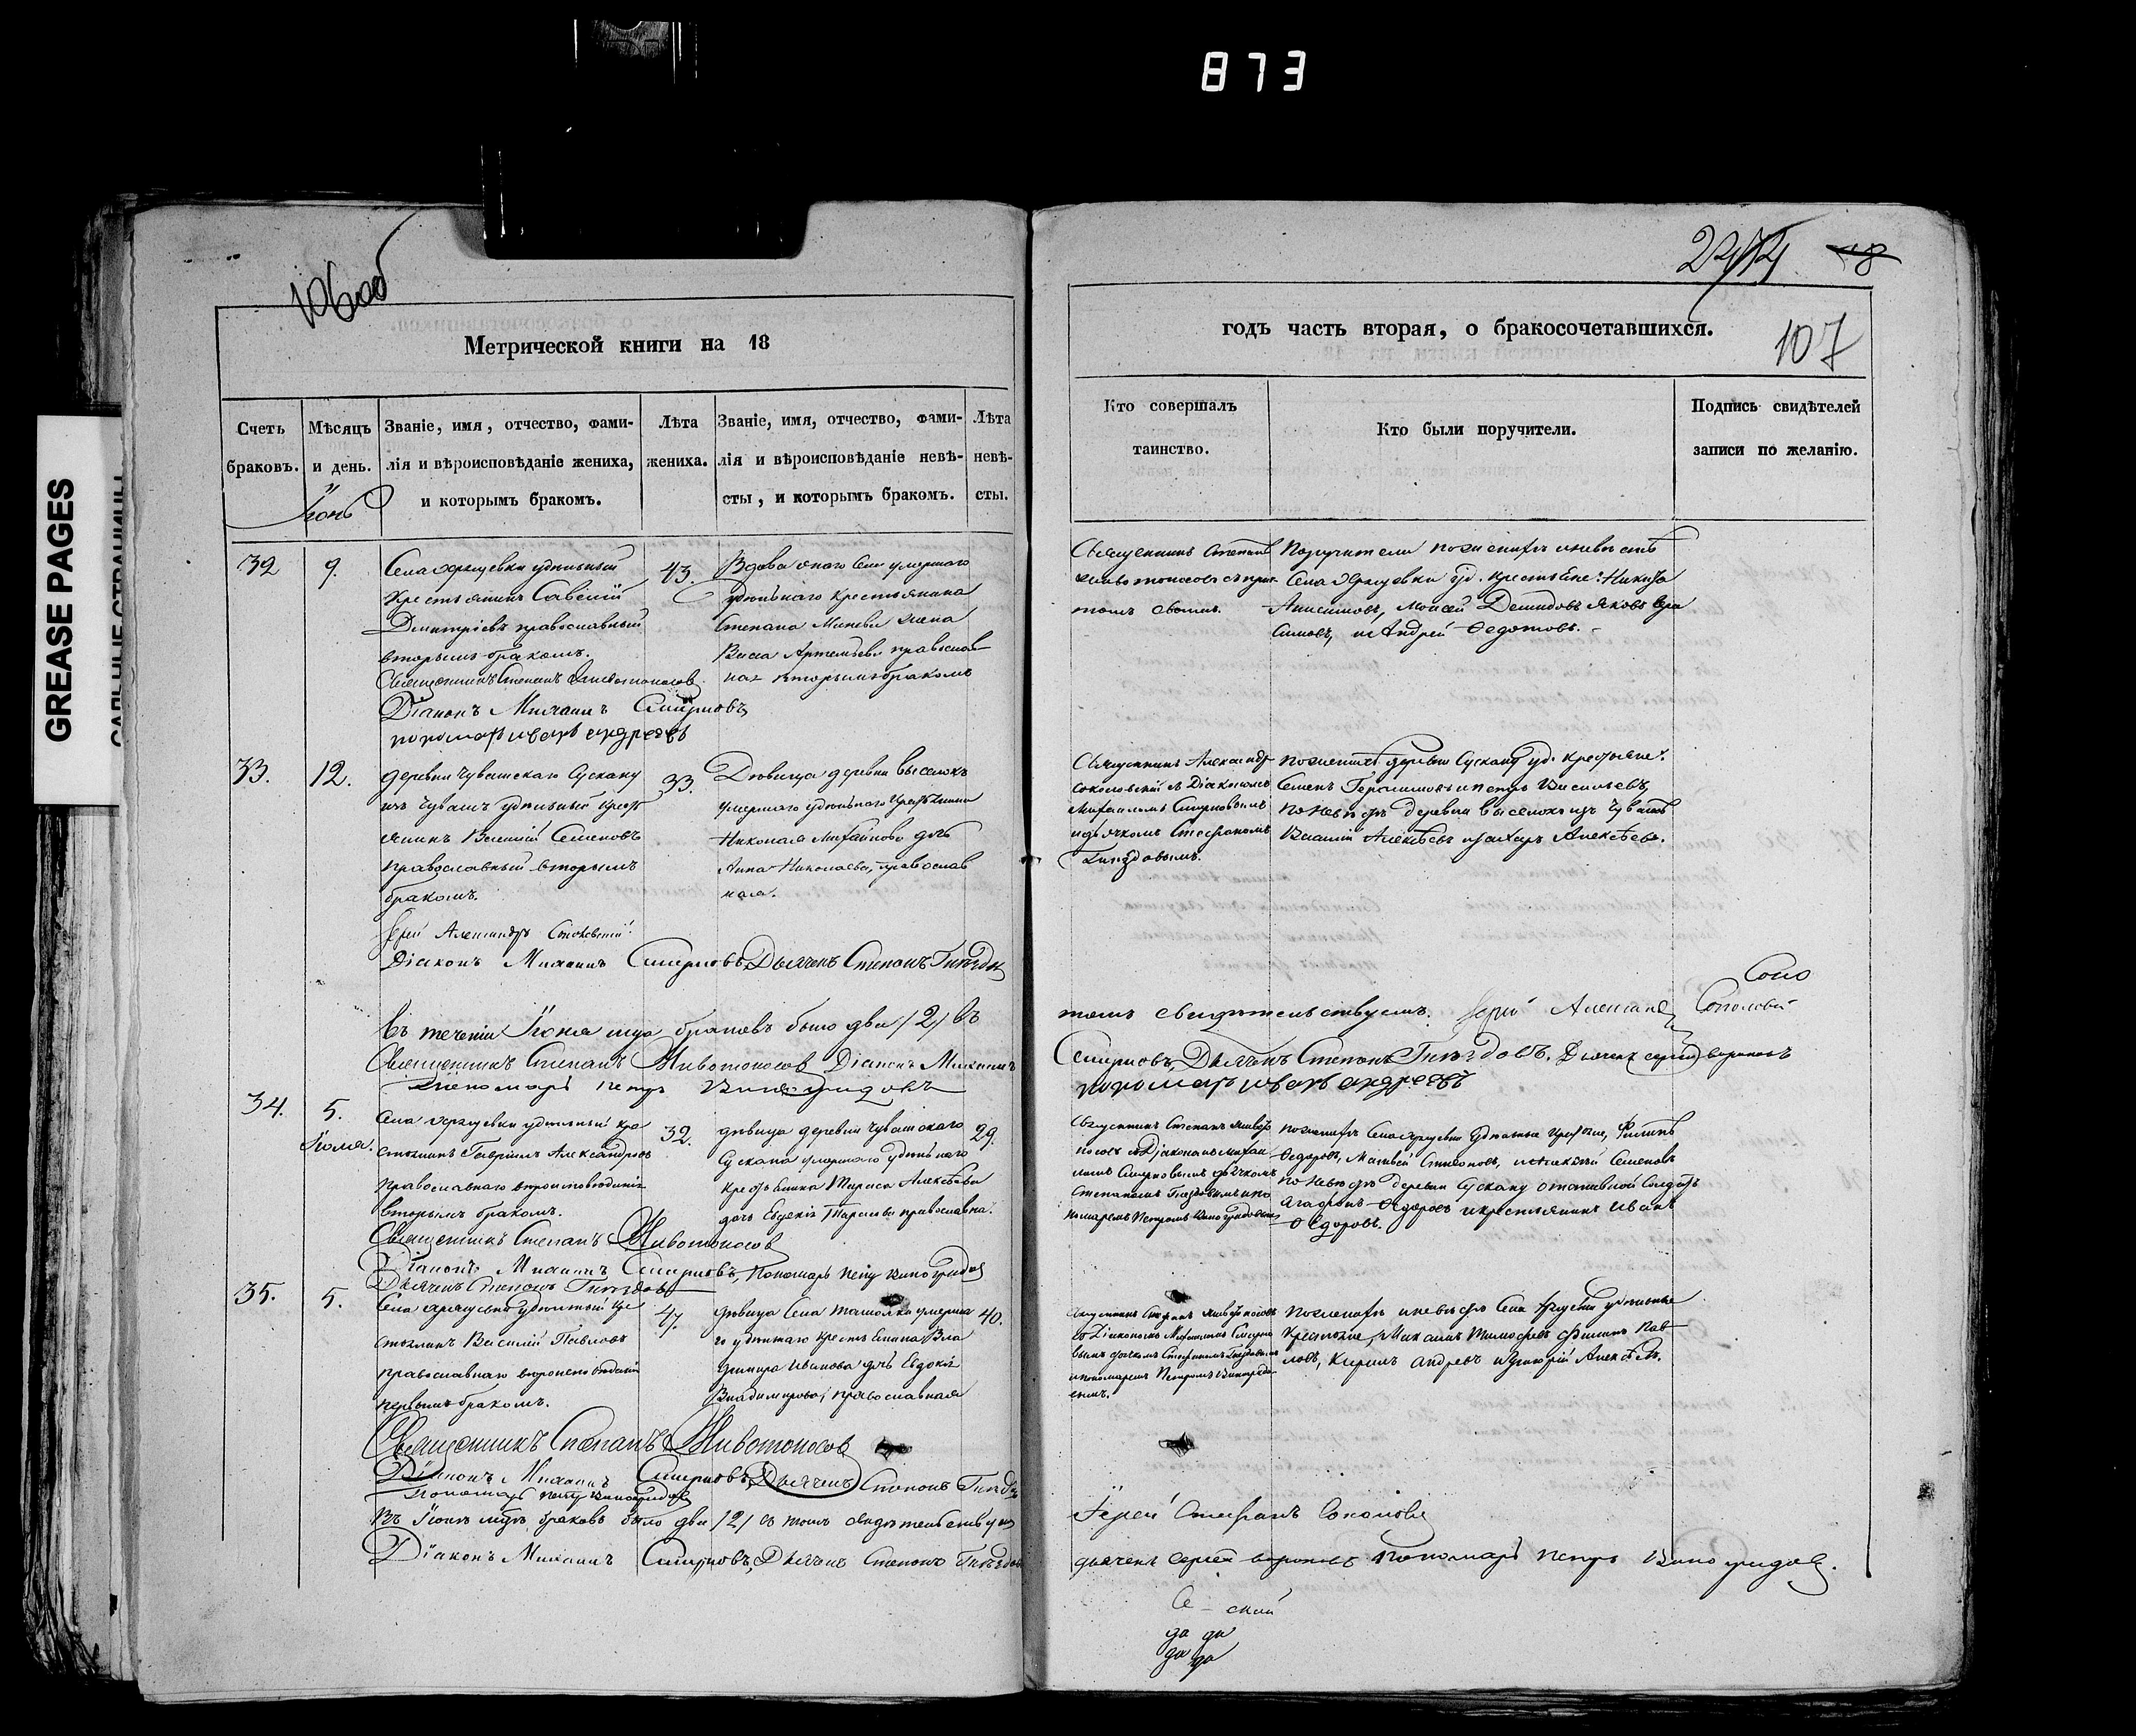 873
GREASE PAGES
САЛЬНЫЕ СТРАНИЦЫ
106 об
Метрической книги на 18
Счетъ браковъ.
Мѣсяцъ и день.
Званіе, имя, отчество, фами-
лія и вѣроисповѣданіе жениха,
и которымъ бракомъ.
Лѣта жениха.
Званіе, имя, отчество, фами-
лія и вѣроисповѣданіе невѣ-
сты, и которымъ бракомъ.
Лѣта невѣ-
сты.
Іюнь
32
9.
Села Хрящевки удѣльный
крестьянинъ Савелій
Дмитріевъ православный
вторымъ бракомъ.
43.
Вдова онаго Села умершаго
удѣльнаго крестьянина
Степана Минѣева жена
Васса Артемьева православ
ная вторымъ бракомъ
Священникъ Степанъ Животоносов
Діаконъ Михаилъ Смирновъ
пономарь Иванъ Андреевъ
33.
12.
деревни Чувашскаго Сускану
изъ Чувашъ удѣльный крест
янинъ Василій Семеновъ
православный вторымъ
бракомъ.
33.
Дѣвица деревни Выселокъ
умершаго удѣльнаго крестьянина
Николая Михайлова дочь
Анна Николаева, православ
ная.
Іерей Александръ Соколовскій
Діаконъ Михаилъ Смирновъ, Дьячекъ Степанъ Гнѣздов
Въ теченіи Іюня мца браковъ было два /2/ въ
Священникъ Степанъ Животоносов Діаконъ Михаилъ
Пономарь Петръ Виноградовъ
34.
5.
Іюля.
Села Хрящевки удѣльный кре
стьянинъ Гавріилъ Александров
православнаго вѣроисповѣданія
вторымъ бракомъ.
32.
дѣвица деревни Чувашскаго
Сускана умершаго удѣльнаго
крестьянина Тараса Алексѣева
дочь Евдокія Тарасова православна.
29.
Священникъ Степанъ Животоносов
Діаконъ Михаилъ Смирновъ, Пономарь Петръ Виноградов
Дьячекъ Степанъ Гнѣздовъ
35.
5.
Села Хрящевки удѣльный кре
стьянинъ Василій Павловъ
православнаго вѣроисповѣданія
первымъ бракомъ.
47.
дѣвица Села Ташолка умерша
го удѣльнаго крестьянина Вла
димира Иванова дочь Евдокія
Владимирова, православная
40.
Священникъ Степанъ Животоносов
Діаконъ Михаилъ Смирновъ, Дьячекъ Степанъ Гнѣздов
Пономарь Петръ Виноградов
Въ Іюлѣ мцѣ браковъ было два /2/ въ томъ свидѣтельствуем
Діаконъ Михаилъ Смирновъ, Дьячекъ Степанъ Гнѣздов
18
107
годъ часть вторая, о бракосочетавшихся.
Кто совершалъ
таинство.
Кто были поручители.
Подпись свидѣтелей
записи по желанію.
Священникъ Степанъ
Животоносовъ съ прич
томъ своимъ.
Поручители по женихѣ и невѣстѣ
Села Хрящевки уд. крестьяне: Никита
Анисимовъ, Моисей Демидовъ Яковъ Гера
симовъ, и Андрей Федотовъ.
Священникъ Александр
Соколовскій съ Діакономъ
Михаиломъ Смирновымъ
и дьячкомъ Стефаномъ
Гнѣздовымъ.
По женихѣ деревни Сускану уд. крестьяне:
Семенъ Герасимовъ и Петръ Васильевъ,
по невѣстѣ деревни Выселокъ изъ Чувашъ
Василій Алексѣевъ и Захаръ Алексѣевъ.
томъ свидѣтельствуемъ. Іерей Александр Соколовск
Смирновъ, Дьячекъ Степанъ Гнѣздовъ. Дьячекъ Сергей Вороновъ
пономарь Иванъ Андреевъ
Священникъ Степанъ Живото
носовъ съ Діакономъ Михаи
ломъ Смирновымъ дьячкомъ
Степаномъ Гнѣздовымъ и по
номаремъ Петромъ Виноградовым
По женихѣ Села Хрящевки Удѣльные крестьяне, Филипъ
Федоровъ, Матвей Степановъ, и Алексѣй Семеновъ
по невѣстѣ деревни Сускану отставной Солдатъ
Агафонъ Федоровъ и крестьянинъ Иванъ
Федоровъ.
Священникъ Стефанъ Животоносовъ
съ Діакономъ Михаиломъ Смирно
вымъ дьячкомъ Стефаномъ Гнѣздовымъ
и пономаремъ Петромъ Виноградо
вымъ.
По женихѣ и невѣстѣ Села Хрящевки удѣльные
Крестьяне, Михаилъ Тимофеевъ Филипъ Пав
ловъ, Кирилъ Андревъ и Григорій Алексѣевъ.
Іерей Стефанъ Соколовъ
дьячекъ Сергей Вороновъ Пономарь Петръ Виноградов.
да да
да да